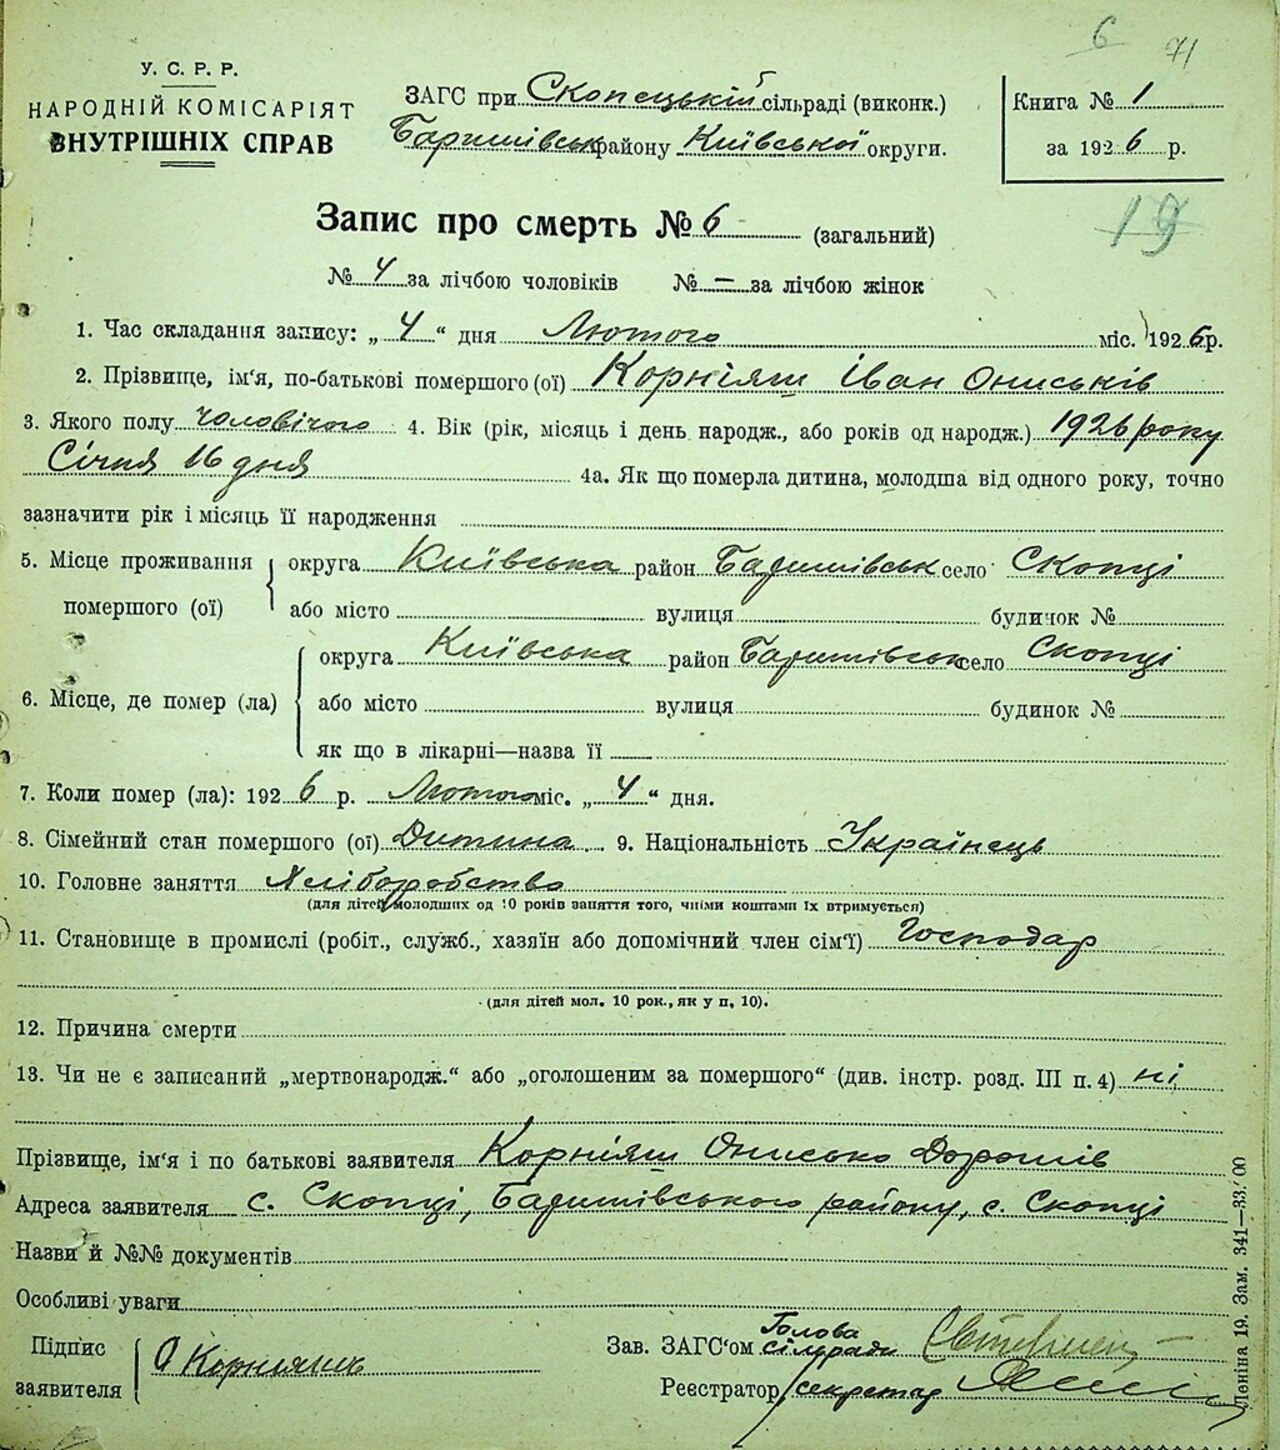 6 71
У. С. Р. Р.
НАРОДНІЙ КОМІСАРІЯТ
ВНУТРІШНІХ СПРАВ
ЗАГС при Скопецькій сільраді (виконк.)
Баришівськ району Київської округи.
Книга № 1
за 1926 р.
19
Запис про смерть № 6 (загальний)
№ 4 за лічбою чоловіків № — за лічбою жінок
1. Час складання запису: „ 4 “ дня Лютого міс. 1926 р.
2. Прізвище, ім'я, по-батькові помершого (ої) Корніяш Іван Ониськів
3. Якого полу чоловічого 4. Вік (рік, місяць і день народж., або років од народж.) 1926 року
Січня 16 дня 4а. Як що померла дитина, молодша від одного року, точно
зазначити рік і місяць її народження
5. Місце проживання помершого (ої) округа Київська район Баришівськ село Скопці
або місто вулиця будинок №
6. Місце, де помер (ла) округа Київська район Баришівськ село Скопці
або місто вулиця будинок №
як що в лікарні—назва її
7. Коли помер (ла): 1926 р. Лютого міс. „ 4 “ дня.
8. Сімейний стан помершого (ої) Дитина 9. Національність Українець
10. Головне заняття Хліборобство
(для дітей молодших од 10 років заняття того, чиїми коштами їх втримується)
11. Становище в промислі (робіт., служб., хазяїн або допомічний член сім'ї) Господар
(для дітей мол. 10 рок., як у п. 10).
12. Причина смерти
13. Чи не є записаний „мертвонародж.“ або „оголошеним за помершого“ (див. інстр. розд. III п. 4) ні
Прізвище, ім'я і по батькові заявителя Корніяш Онисько Дорошів
Адреса заявителя с. Скопці, Баришівського району, с. Скопці
Назви й №№ документів
Особливі уваги
Підпис заявителя О Корниянь
Зав. ЗАГС'ом Голова сільради
Реєстратор/секретар
Леніна 19. Зам. 341—33.